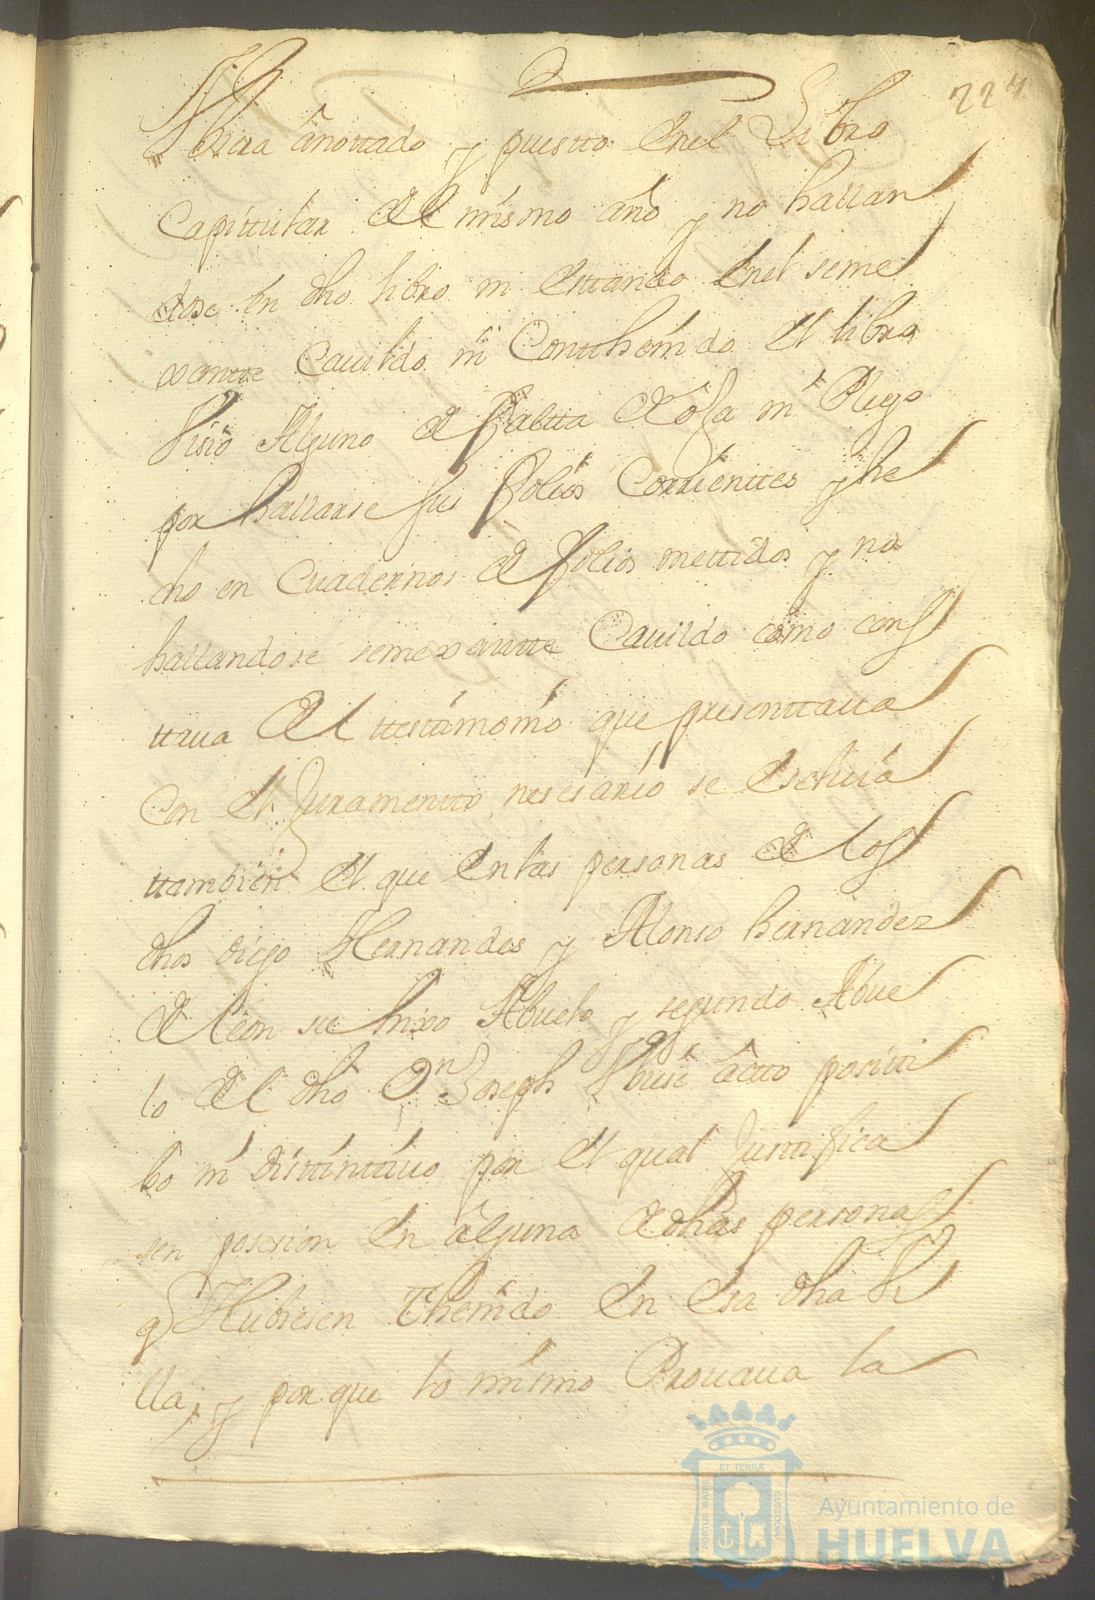 224
Vbiera anottado y puestto Enel Libro
Capittular del mismo año y no hallan
dose en dho libro ni Cittando Enel seme
xantte Cauildo ni Conttheñido El libro
Visio Alguno de faltta de oja ni Pliego
por hallarse sus folios Corrienttes y he
cho en Cuadernos de folios mettidos y no
hallandose semexantte Cauildo como cons
ttaua del ttestimonio que presenttaua
Con el Juramentto nesesario se Escluia
ttambien el que En las personas de los
dhos diego Hernandes y Alonso hernandez
de leon su hixo Abuelo y segundo Abue
lo del dho Dn Joseph Vbiese actto positi
bo ni disttinttiuo por el qual Justtifica
sen posesion En alguna de dhas personas
q Hubiesen Thenido En esa dha Vi
lla, y por que lo mismo Prouaua la
PORTUS MARIS ET TERRAE CUSTODIA
Ayuntamiento de
HUELVA